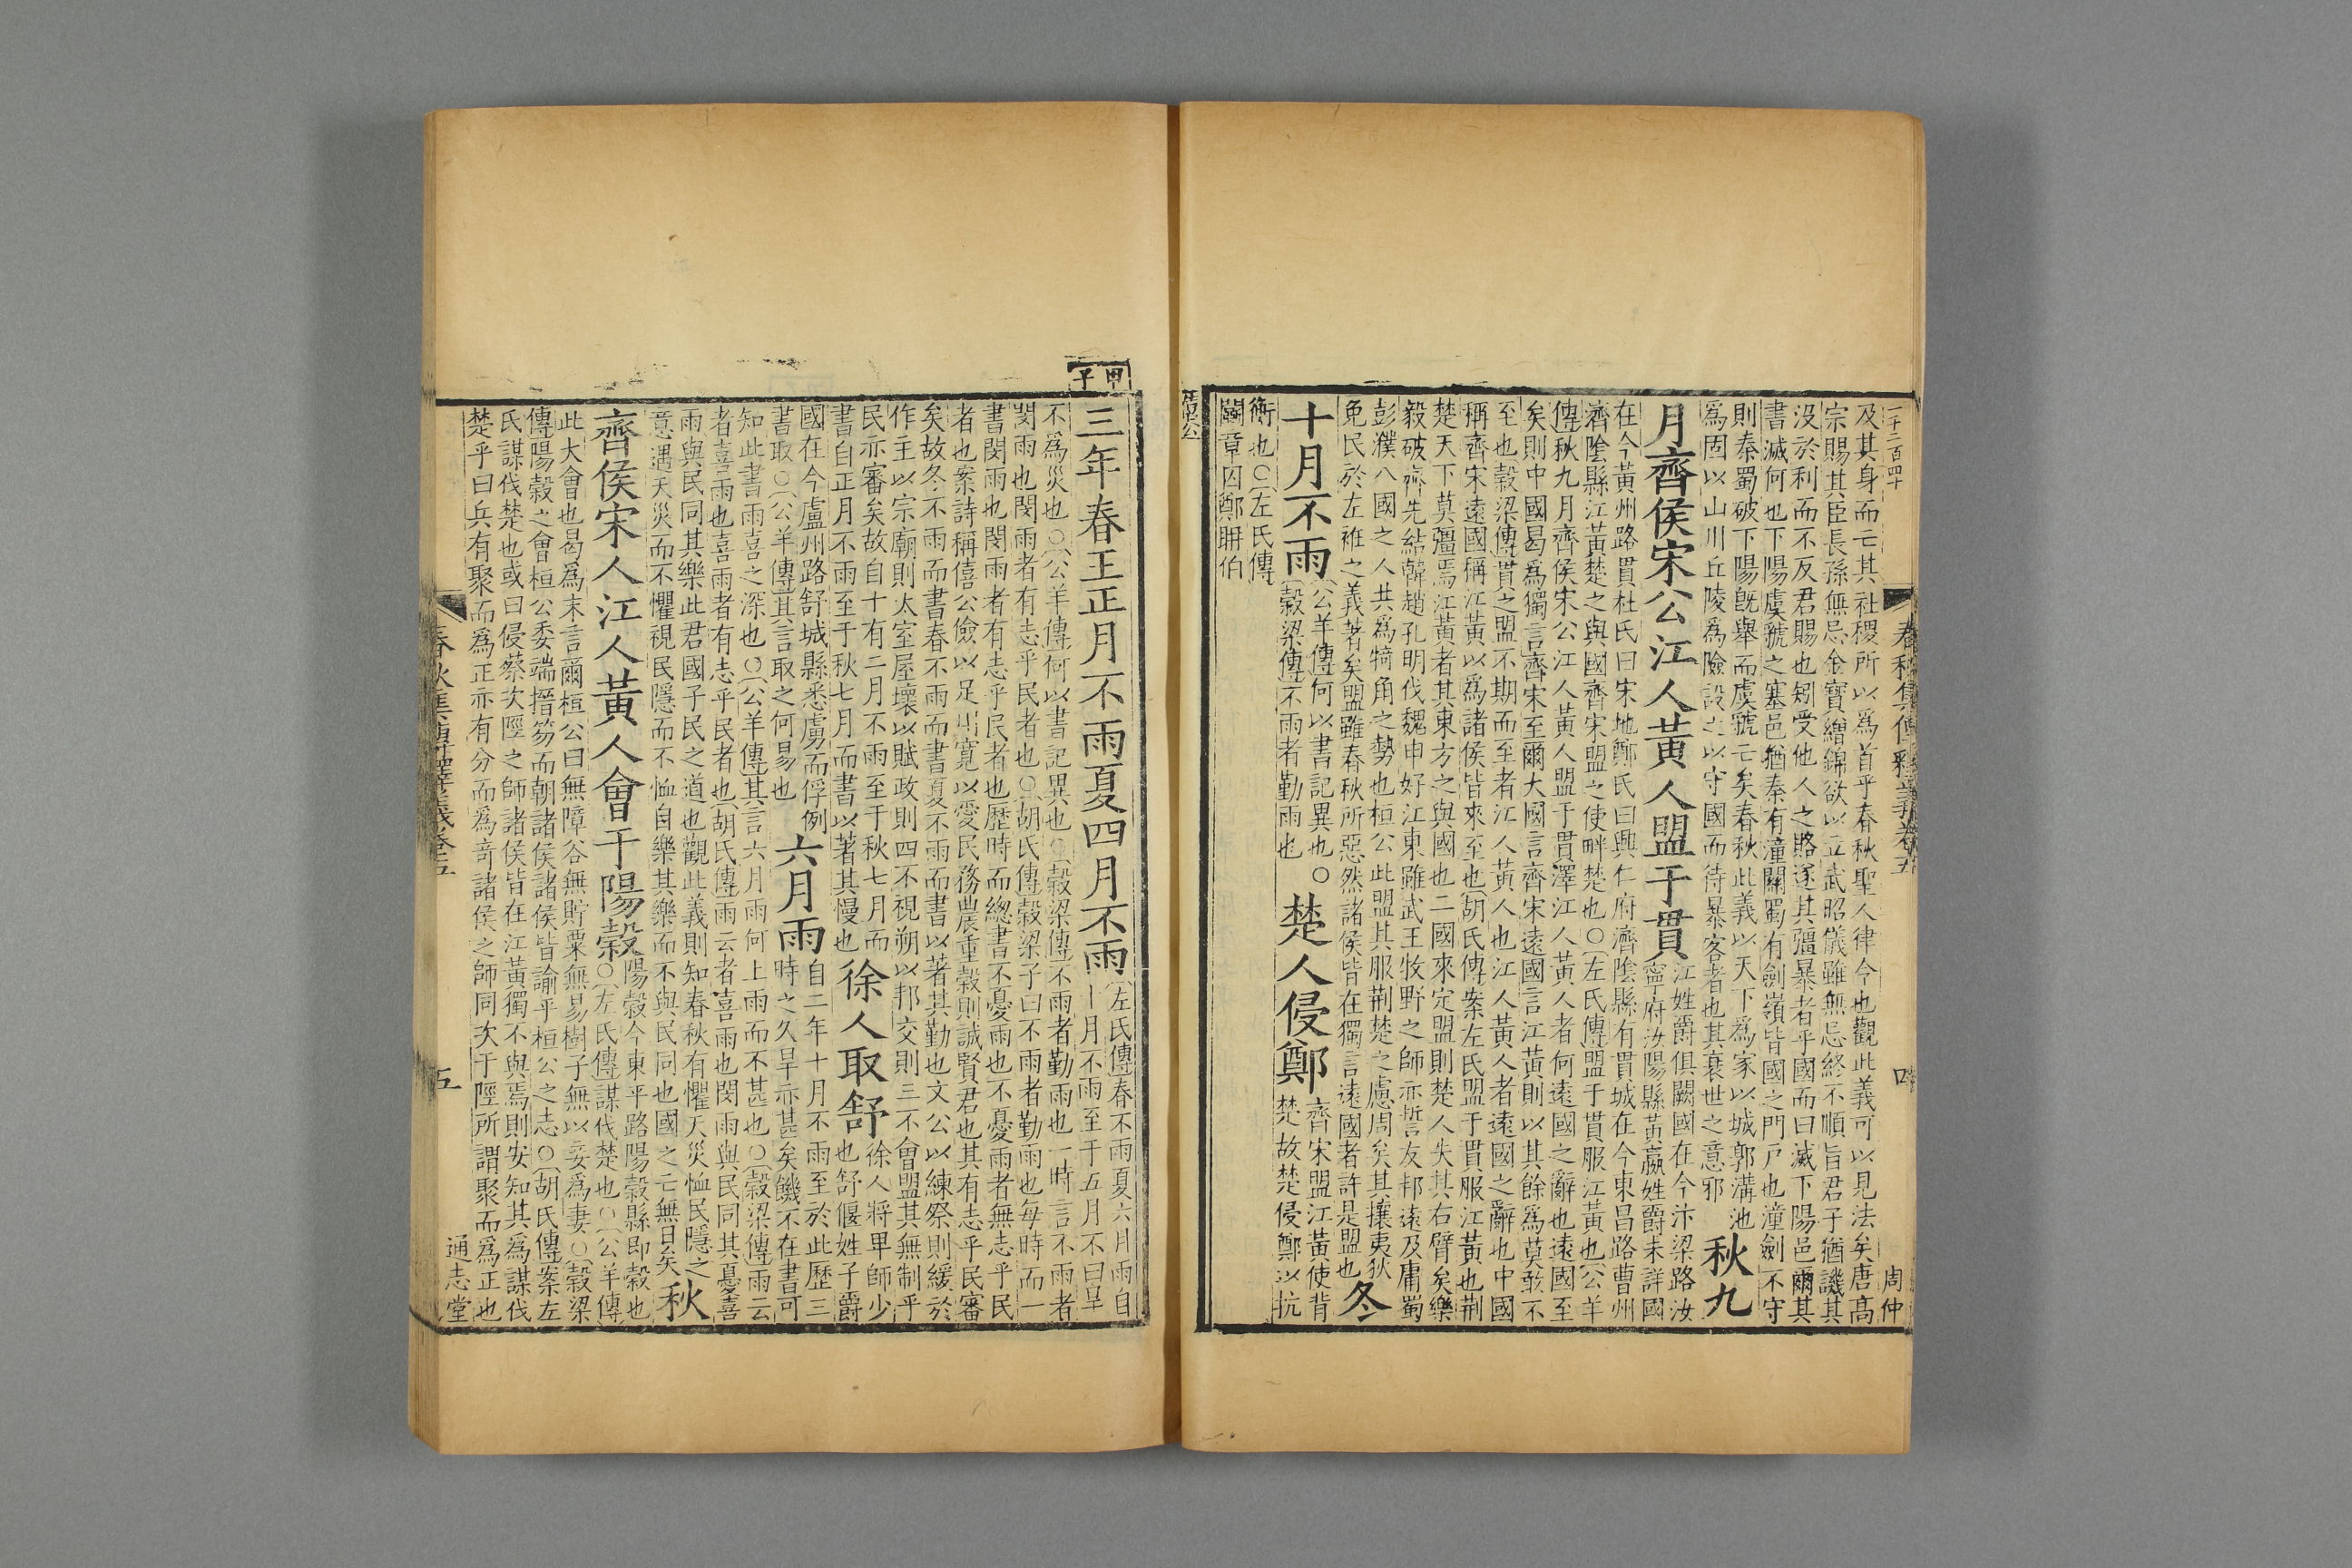 二千二百四十
春秋集傳釋義卷五
四
周仲
及其身而亡其社稷所以爲首乎春秋聖人律令也觀此義可以見法矣唐高
宗賜其臣長孫無忌金寶繒錦欲以立武昭儀雖無忌終不順旨君子猶譏其
沒於利而不反君賜也矧受他人之賂遂其彊暴者乎國而曰滅下陽邑爾其
書滅何也下陽虞虢之塞邑猶秦有潼關蜀有劍嶺皆國之門戶也潼劍不守
則秦蜀破下陽旣舉而虞虢亡矣春秋此義以天下爲家以城郭溝池
爲固以山川丘陵爲險設之以守國而待暴客者也其衰世之意邪
秋九
月齊侯宋公江人黃人盟于貫
江姓爵俱闕國在今汴梁路汝
寧府汝陽縣黃嬴姓爵未詳國
在今黃州路貫杜氏曰宋地鄭氏曰興仁府濟陰縣有貫城在今東昌路曹州
濟陰縣江黃楚之與國齊宋盟之使畔楚也○左氏傳盟于貫服江黃也公羊
傳秋九月齊侯宋公江人黃人盟于貫澤江人黃人者何遠國之辭也遠國至
矣則中國曷爲獨言齊宋至爾大國言齊宋遠國言江黃則以其餘爲莫敢不
至也穀梁傳貫之盟不期而至者江人黃人也江人黃人者遠國之辭也中國
稱齊宋遠國稱江黃以爲諸侯皆來至也胡氏傳案左氏盟于貫服江黃也荆
楚天下莫彊焉江黃者其東方之與國也二國來定盟則楚人失其右臂矣樂
毅破齊先結韓趙孔明伐魏申好江東雖武王牧野之師亦誓友邦遠及庸蜀
彭濮八國之人共爲犄角之勢也桓公此盟其服荆楚之慮周矣其攘夷狄
免民於左袵之義著矣盟雖春秋所惡然諸侯皆在獨言遠國者許是盟也
冬
十月不雨
公羊傳何以書記異也○
穀梁傳不雨者勤雨也
楚人侵鄭
齊宋盟江黃使背
楚故楚侵鄭以抗
衡也○左氏傳
鬬章囚鄭聃伯
僖公
甲子
三年春王正月不雨夏四月不雨
左氏傳春不雨夏六月雨自
十月不雨至于五月不曰旱
不爲災也○公羊傳何以書記異也○穀梁傳不雨者勤雨也一時言不雨者
閔雨也閔雨者有志乎民者也○胡氏傳穀梁子曰不雨者勤雨也每時而一
書閔雨也閔雨者有志乎民者也歷時而總書不憂雨也不憂雨者無志乎民
者也案詩稱僖公儉以足用寬以愛民務農重穀則誠賢君也其有志乎民審
矣故冬不雨而書春不雨而書夏不雨而書以著其勤也文公以練祭則緩於
作主以宗廟則太室屋壞以賦政則四不視朔以邦交則三不會盟其無制乎
民亦審矣故自十有二月不雨至于秋七月而
書自正月不雨至于秋七月而書以著其慢也
徐人取舒
徐人將畢師少
也舒偃姓子爵
國在今盧州路舒城縣悉虜而俘例
書取○公羊傳其言取之何易也
六月雨
自二年十月不雨至於此歷三
時之久旱亦甚矣饑不在書可
知此書雨喜之深也○公羊傳其言六月雨何上雨而不甚也○穀梁傳雨云
者喜雨也喜雨者有志乎民者也胡氏傳雨云者喜雨也閔雨與民同其憂喜
雨與民同其樂此君國子民之道也觀此義則知春秋有懼天災恤民隱之
意遇天災而不懼視民隱而不恤自樂其樂而不與民同也國之亡無日矣
秋
齊侯宋人江人黃人會于陽穀
陽穀今東平路陽穀縣即穀也
○左氏傳謀伐楚也○公羊傳
此大會也曷爲末言爾桓公曰無障谷無貯粟無易樹子無以妾爲妻○穀梁
傳陽穀之會桓公委端搢笏而朝諸侯諸侯皆諭乎桓公之志○胡氏傳案左
氏謀伐楚也或曰侵蔡次陘之師諸侯皆在江黃獨不與焉則安知其爲謀伐
楚乎曰兵有聚而爲正亦有分而爲奇諸侯之師同次于陘所謂聚而爲正也
春秋集傳釋義卷五
五
通志堂